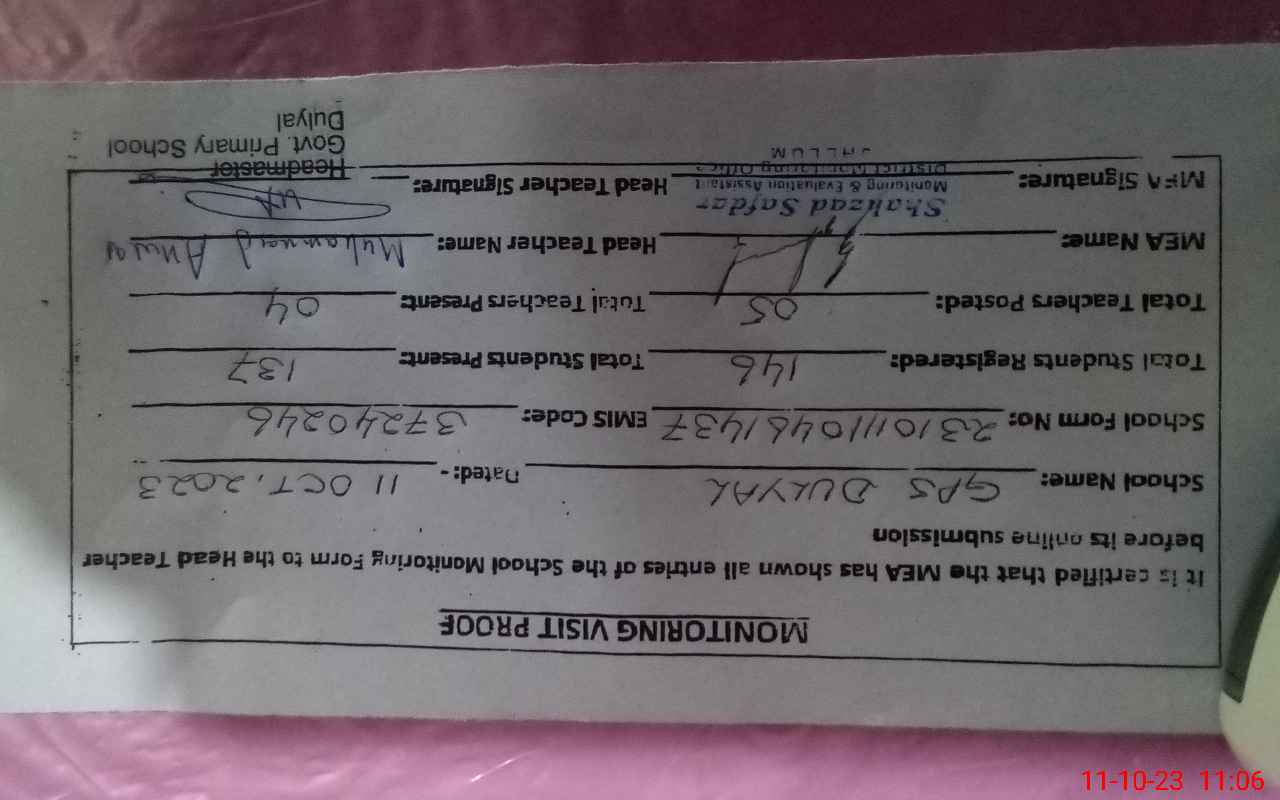 MONITORING VISIT PROOF
It is certified that the MEA has shown all entries of the School Monitoring Form to the Head Teacher
before its online submission
School Name: GPS DULYAL Dated:- 11 OCT, 2023
School Form No: 23101110461437 EMIS Code: 37240246
Total Students Registered: 146 Total Students Present: 137
Total Teachers Posted: 05 Total Teachers Present: 04
MEA Name: Head Teacher Name: Muhammad Anwar
Shahzad Safdar
Monitoring & Evaluation Assistant
MEA Signature: District Monitoring Office Head Teacher Signature: Headmaster
JHELUM
Govt. Primary School
Dulyal
11-10-23 11:06